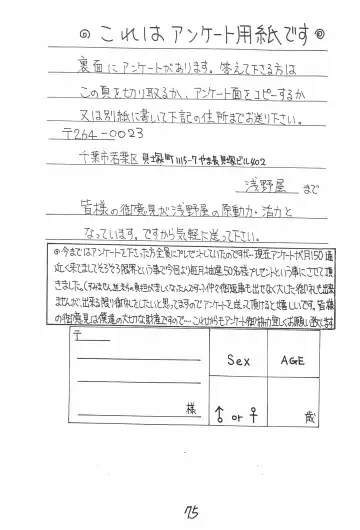 これはアンケート用紙です
裏面にアンケートがあります。答えて下さる方は
この頁を切り取るか、アンケート面をコピーするか
又は別紙に書いて下記の住所までお送り下さい。
〒264-0023
千葉市若葉区貝塚町1115-7やま長貝塚ビル402
浅野屋 まで
皆様の御意見が浅野屋の原動力・活力と
なっています。ですから気軽に送って下さい。
◎今まではアンケートを下さった方全員にプレゼントしていたのですが…現在アンケートが月150通
近く来てましてそろそろ限界という事で今回より毎月抽選50名様プレゼントという事にさせて頂
きました。
出来る限り御礼をしたいと思ってますのでアンケートを送って頂けると嬉しいです。皆様
の御意見は僕達の大切な財産ですので…これからもアンケート御協力宜しくお願い致します
〒
様
Sex
AGE
♂ or ♀
歳
75